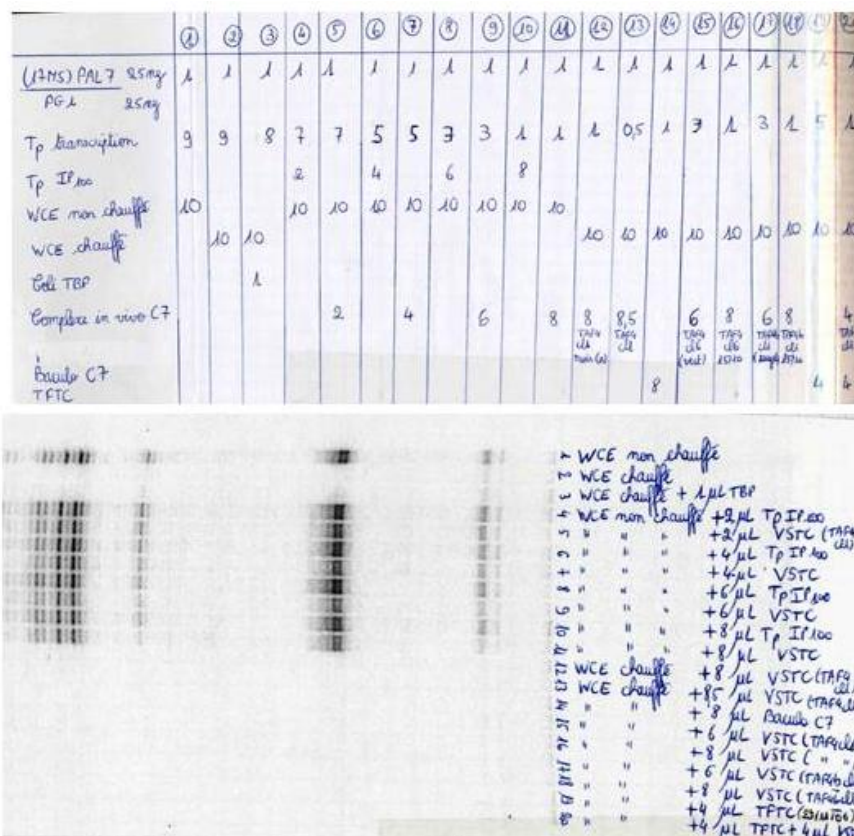 ① ② ③ ④ ⑤ ⑥ ⑦ ⑧ ⑨ ⑩ ⑪ ⑫ ⑬ ⑭ ⑮ ⑯ ⑰ ⑱ ⑲
(17M5) PAL7 25ng 1 1 1 1 1 1 1 1 1 1 1 1 1 1 1 1 1 1 1
PG1 25ng
Tp transcription 9 9 8 7 7 5 5 3 3 1 1 1 0,5 1 3 1 3 1 5 1
Tp IP100 2 4 6 8
WCE non chauffé 10 10 10 10 10 10 10 10 10
WCE chauffé 10 10 10 10 10 10 10 10 10 10
Coli TBP 1
Complexe in vivo C7 2 4 6 8 8 8,5 6 8 6 8 4
Baculo C7 8
TFTC 4 4
1 WCE non chauffé
2 WCE chauffé
3 WCE chauffé + 1 µL TBP
4 WCE non chauffé + 2 µL Tp IP100
5 " " " + 2 µL VSTC (TAF4
6 " " " + 4 µL Tp IP100
7 " " " + 4 µL VSTC
8 " " " + 6 µL Tp IP100
9 " " " + 6 µL VSTC
10 " " " + 8 µL Tp IP100
11 " " " + 8 µL VSTC
12 WCE chauffé + 8 µL VSTC (TAF4
13 WCE chauffé + 8,5 µL VSTC (TAF4
14 " " + 8 µL Baculo C7
15 " " + 6 µL VSTC (TAF4
16 " " + 8 µL VSTC ( " "
17 " " + 6 µL VSTC
18 " " + 8 µL VSTC
19 " " + 4 µL TFTC
20 " " + 4 µL TFTC + 4 µL